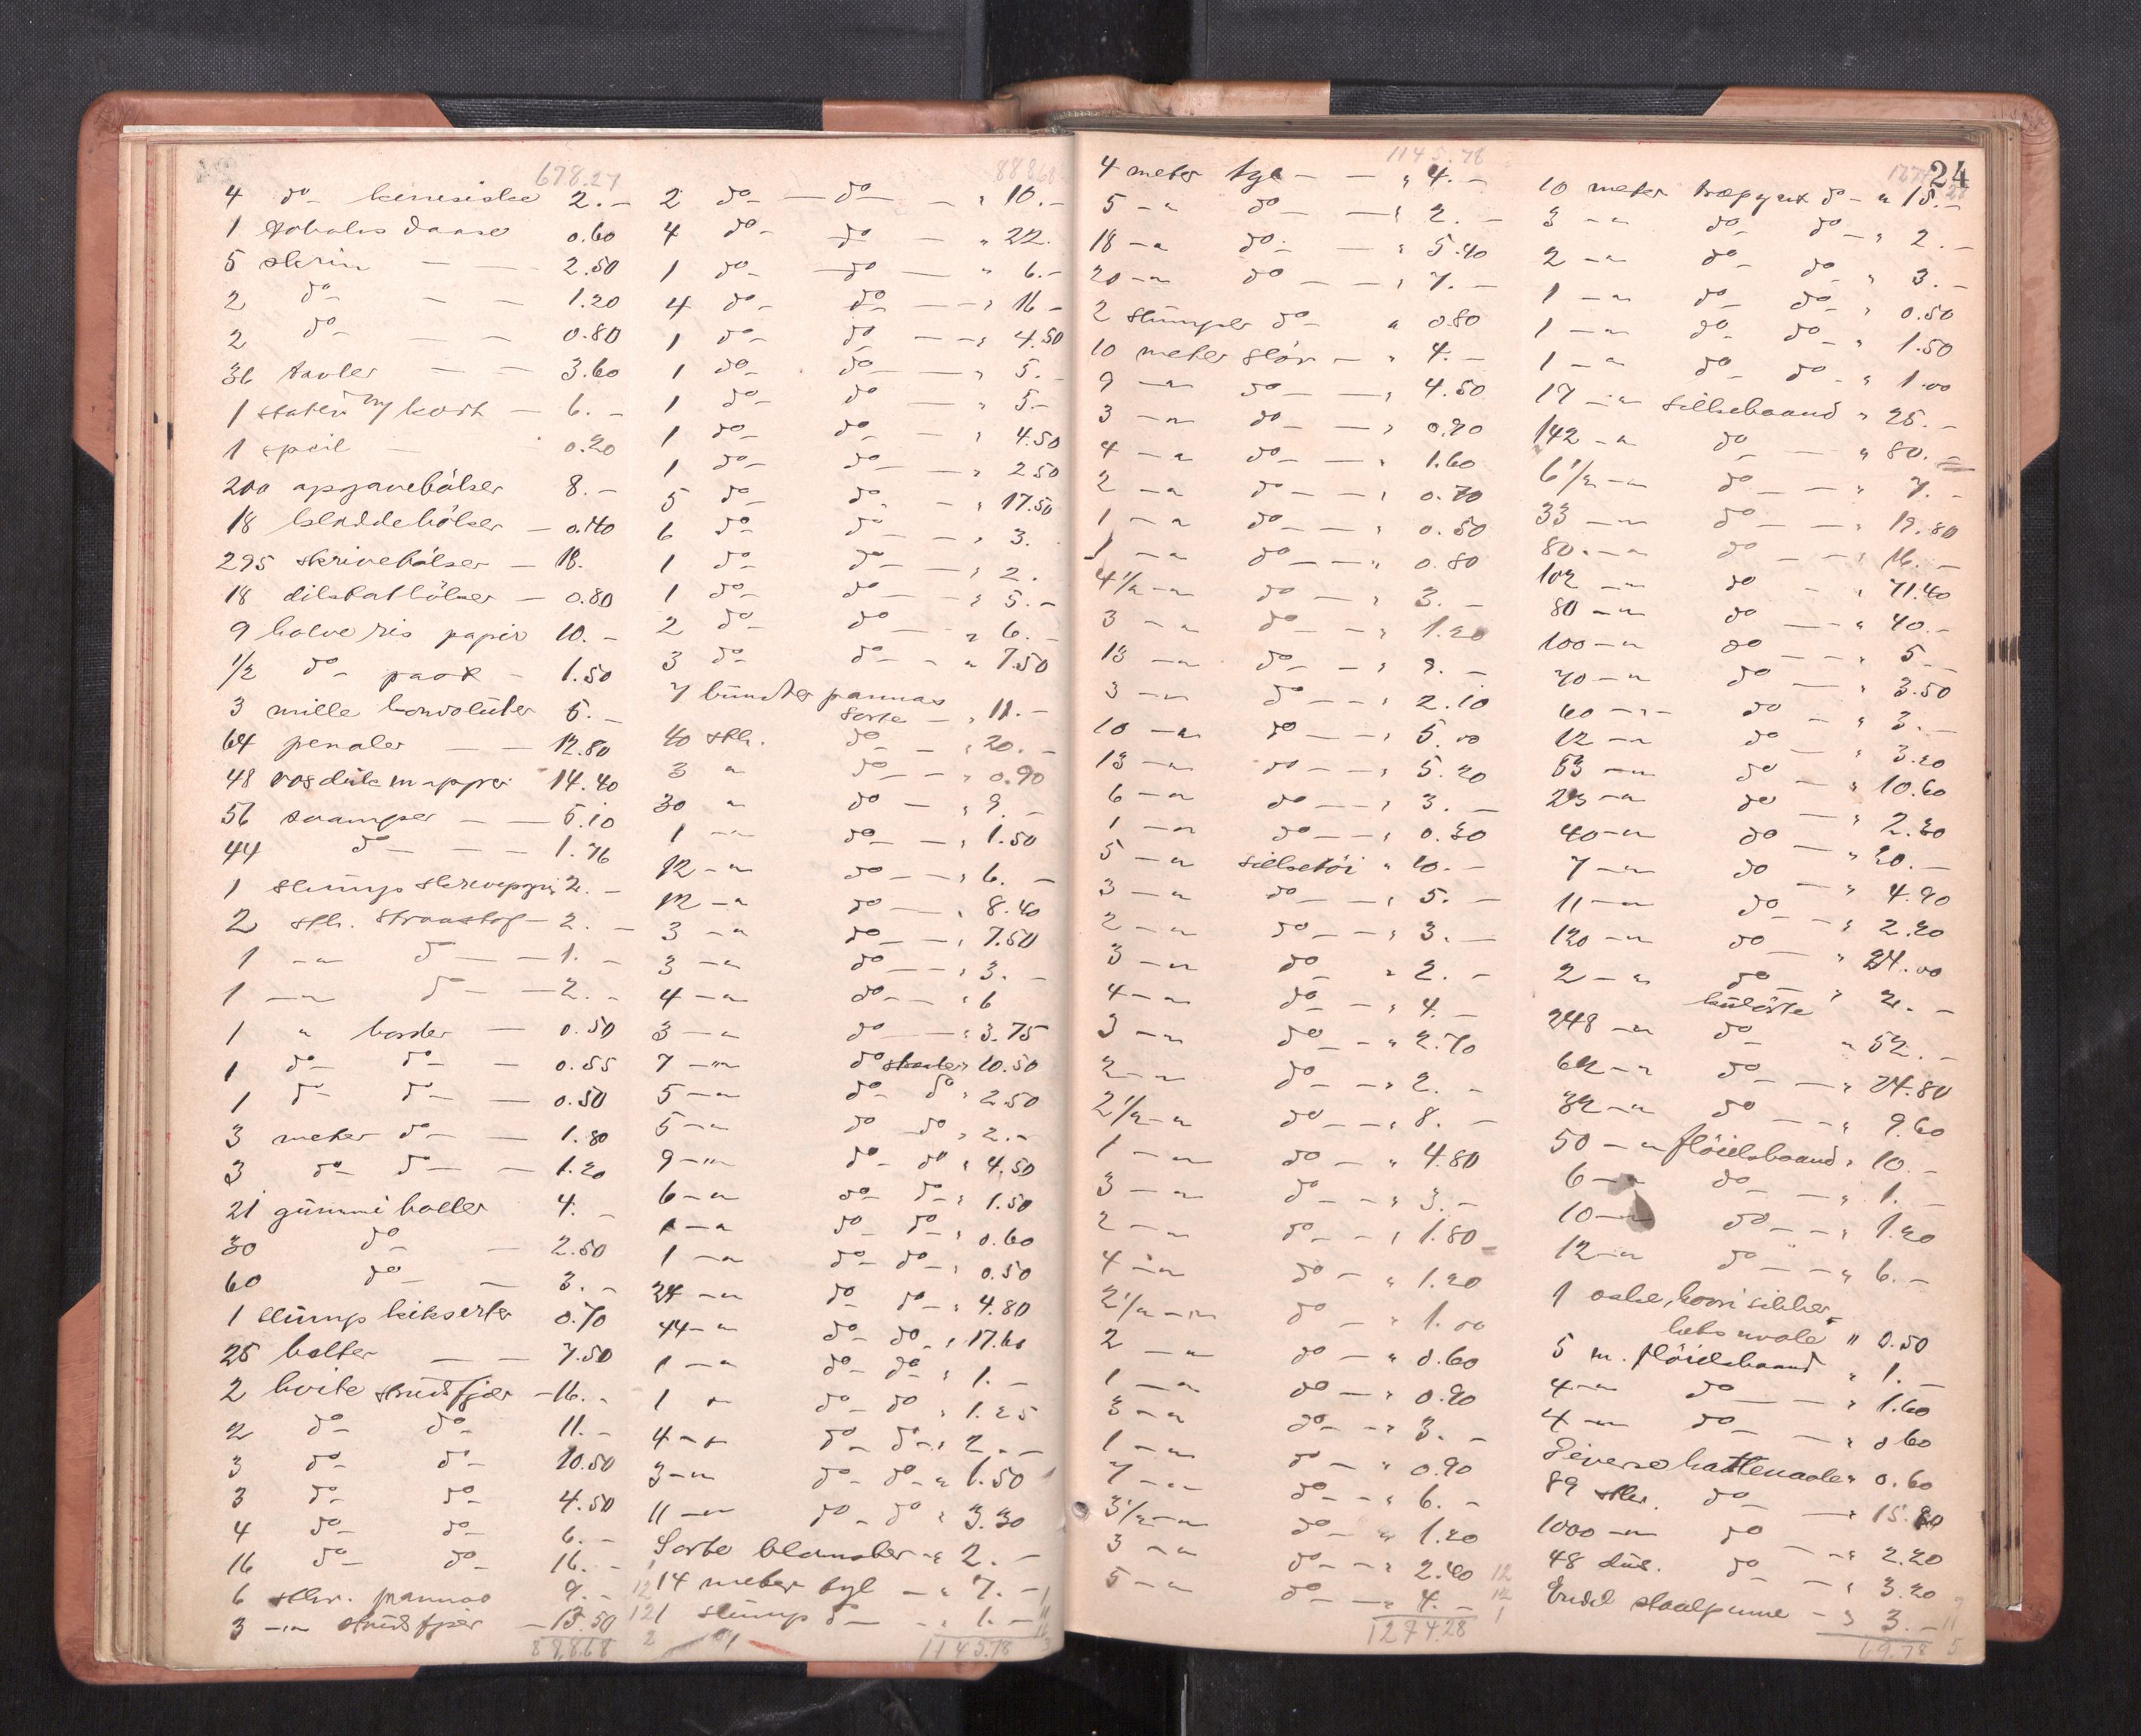 678.27
4 do kinesiske 2.–
1 tobaks daase 0.60
5 skrin — — 2.50
2 do — — 1.20
2 do — — 0.80
36 tavler — — 3.60
1 kort — 6.–
1 speil — 0.20
200 opgavebøker 8.–
18 kladdebøker — 0.40
295 skrivebøker — 18.
18 diktatbøker — 0.80
9 halve ris papir 10.–
1/2 do pak – 1.50
3 mille konvoluter 5.–
64 penaler — — 12.80
48 voxdukmapper 14.40
56 svamper — — 5.10
44 do — — 1.76
1 slump 2.–
2 stk. — 2.–
1 —„ do — — 1.–
1 —„ do — — 2.–
1 „ border — 0.50
1 do do — 0.55
1 do do — 0.50
3 meter do — 1.80
3 do do — 1.20
21 gummi baller 4.–
30 do — 2.50
60 do — 3.–
1 slump 0.70
25 belter — — 7.50
2 hvite strudsfjær — 16.–
2 do do 11.–
3 do do 10.50
3 do do 4.50
4 do do 6.–
16 do do 16.–
6 stkr. pannas 9.–
3 —„ strudsfjær — 13.50
888.68
888.68
2 do — do — „ 10.–
4 do do — „ 22.
1 do — do — „ 6.–
4 do do — „ 16–
1 do do — „ 4.50
1 do do — „ 5.–
1 do do — „ 5–
1 do do — „ 4.50
1 do do — „ 2.50
5 do do — „ 17.50
6 do do — „ 3.
1 do do — „ 2.
1 do do — „ 5.–
2 do do — „ 6.–
3 do do — „ 7.50
7 bundter pannas
sorte — „ 11.–
40 stk. do — „ 20.–
3 „ do — „ 0.90
30 „ do — „ 9.–
1 —„ do — „ 1.50
12 —„ do — „ 6.–
12 —„ do — „ 8.40
3 —„ do — „ 7.50
3 —„ do — „ 3.–
4 —„ do — „ 6
3 —„ do — „ 3.75
7 —„ do 10.50
5 —„ do do „ 2.50
5 —„ do do „ 2.–
9 —„ do do „ 4.50
6 —„ do do „ 1.50
1 —„ do do „ 0.60
1 —„ do do „ 0.50
24 —„ do do „ 4.80
44 —„ do do „ 17.60
1 —„ do do „ 1.–
1 „ do do „ 1.25
4 —„ do do „ 2.–
3 —„ do do „ 1.50
11 —„ do do „ 3.30
Sorte blomster „ 2.–
14 meter tyl — „ 7.–
1 slump do — „ 1.–
1145.78
1145.78
4 meter tyl — — „ 4.–
5 —„ do — „ 2.–
18 —„ do — „ 5.40
20 —„ do — „ 7.–
2 stumper do „ 0.80
10 meter slør — „ 4.–
9 —„ do — „ 4.50
3 —„ do — „ 0.90
4 —„ do — „ 1.60
2 —„ do — „ 0.70
1 —„ do — „ 0.50
1 —„ do — „ 0.80
4 1/2 —„ do — „ 3.–
3 —„ do — „ 1.20
13 —„ do — „ 9.–
3 —„ do — „ 2.10
10 —„ do — „ 5.00
13 —„ do — „ 5.20
6 —„ do — „ 3.–
1 —„ do — „ 0.30
5 —„ silketøi „ 10.–
3 —„ do — „ 5.–
2 —„ do — „ 3.–
3 —„ do „ 2.–
4 —„ do — „ 4.–
3 —„ do — „ 2.70
2 —„ do — „ 2.–
2 1/2 —„ do — „ 8.–
1 —„ do — „ 4.80
3 —„ do — „ 3.–
2 —„ do — „ 1.80
4 —„ do — „ 1.20
2 1/2 —„ do — „ 1.00
2 —„ do — „ 0.60
1 —„ do — „ 0.90
3 —„ do — „ 3.–
1 —„ do — „ 0.90
7 —„ do — „ 6.–
3 1/2 —„ do — „ 1.20
3 —„ do — „ 2.40
5 —„ do — „ 4.–
1274.28
24
10 meter do „ 15.–
3 —„ do do „ 2.–
2 —„ do do „ 3.–
1 —„ do do „ 0.50
1 —„ do do „ 1.50
1 —„ do do „ 1.00
17 —„ silkebaand „ 25.–
142 —„ do — „ 80.–
6 1/2 —„ do — „ 7.–
33 —„ do — „ 19.80
80 —„ do — „ 16.–
102 —„ do — „ 71.40
80 —„ do — „ 40.–
100 —„ do — „ 5.–
70 —„ do — „ 3.50
60 —„ do — „ 3.–
12 —„ do — „ 3.20
53 —„ do — „ 10.60
23 —„ do — „ 2.30
40 —„ do — „ 20.–
7 —„ do — „ 4.90
11 —„ do — „ 2.20
120 —„ do — „ 24.00
2 —„ do — „ 2.–
kulørte
248 —„ do „ 52.–
62 —„ do — „ 24.80
32 —„ do — „ 9.60
50 —„ fløielsbaand „ 10.–
6 —„ do — „ 1.–
10 —„ do — „ 1.20
12 —„ do — „ 6.–
1 æske
„ 0.50
5 m. fløielsbaand „ 1.–
4 —„ do — „ 1.60
4 —„ do — „ 0.60
Diverse hattenaale „ 0.60
89 stkr. do — „ 15.80
1000 —„ do — „ 2.20
48 dus. do — „ 3.20
Endel — „ 3.–